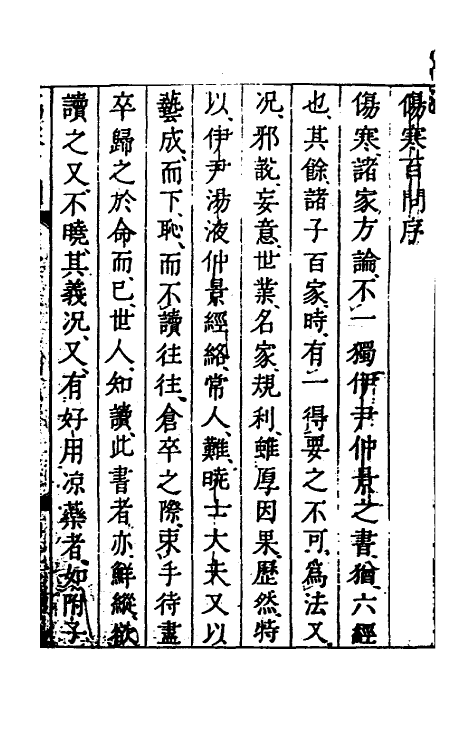 傷寒百問序
傷寒諸家方論不一獨伊尹仲景之書猶六經
也其餘諸子百家時有一得要之不可為法又
況邪說妄意世業名家規利雖厚因果歷然特
以伊尹湯液仲景經絡常人難曉士大夫又以
藝成而下恥而不讀往往倉卒之際束手待盡
卒歸之於命而已世人知讀此書者亦鮮縱欲
讀之又不曉其義況又有好用凉藥者如附子